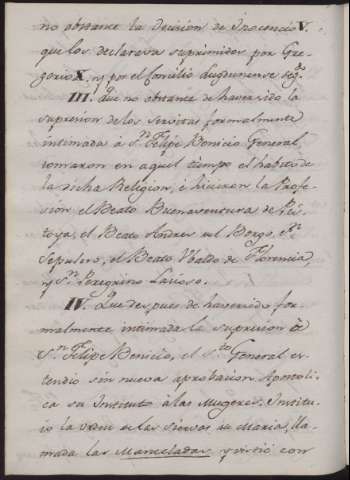 no obstante la Decision de Inocencio V.
que los declarava suprimidos por Gre-
gorio X. y por el Concilio Lugdunense seg.º
III. Que no obstante de haver sido la
supresion de los Servitas formalmente
intimada à S.n Felipe Benicio General,
tomaron en aquel tiempo el habito de
la dicha Religion, è hicieron la Profe-
sion el Beato Buenaventura de Pis-
toya, el Beato Andres del Borgo, S.n
Sepulcro, el Beato Vbaldo de Florencia,
y S.n Peregrino Lacioso.
IV. Que despues de haver sido for-
malmente intimada la supresion à
S.n Felipe Benicio, el S.to General es-
tendio sin nueva aprobacion Apostoli-
ca su Instituto à las Mugeres. Institu-
io la Orden de las Siervas de Maria, lla-
mada las Manteladas, y vistió con